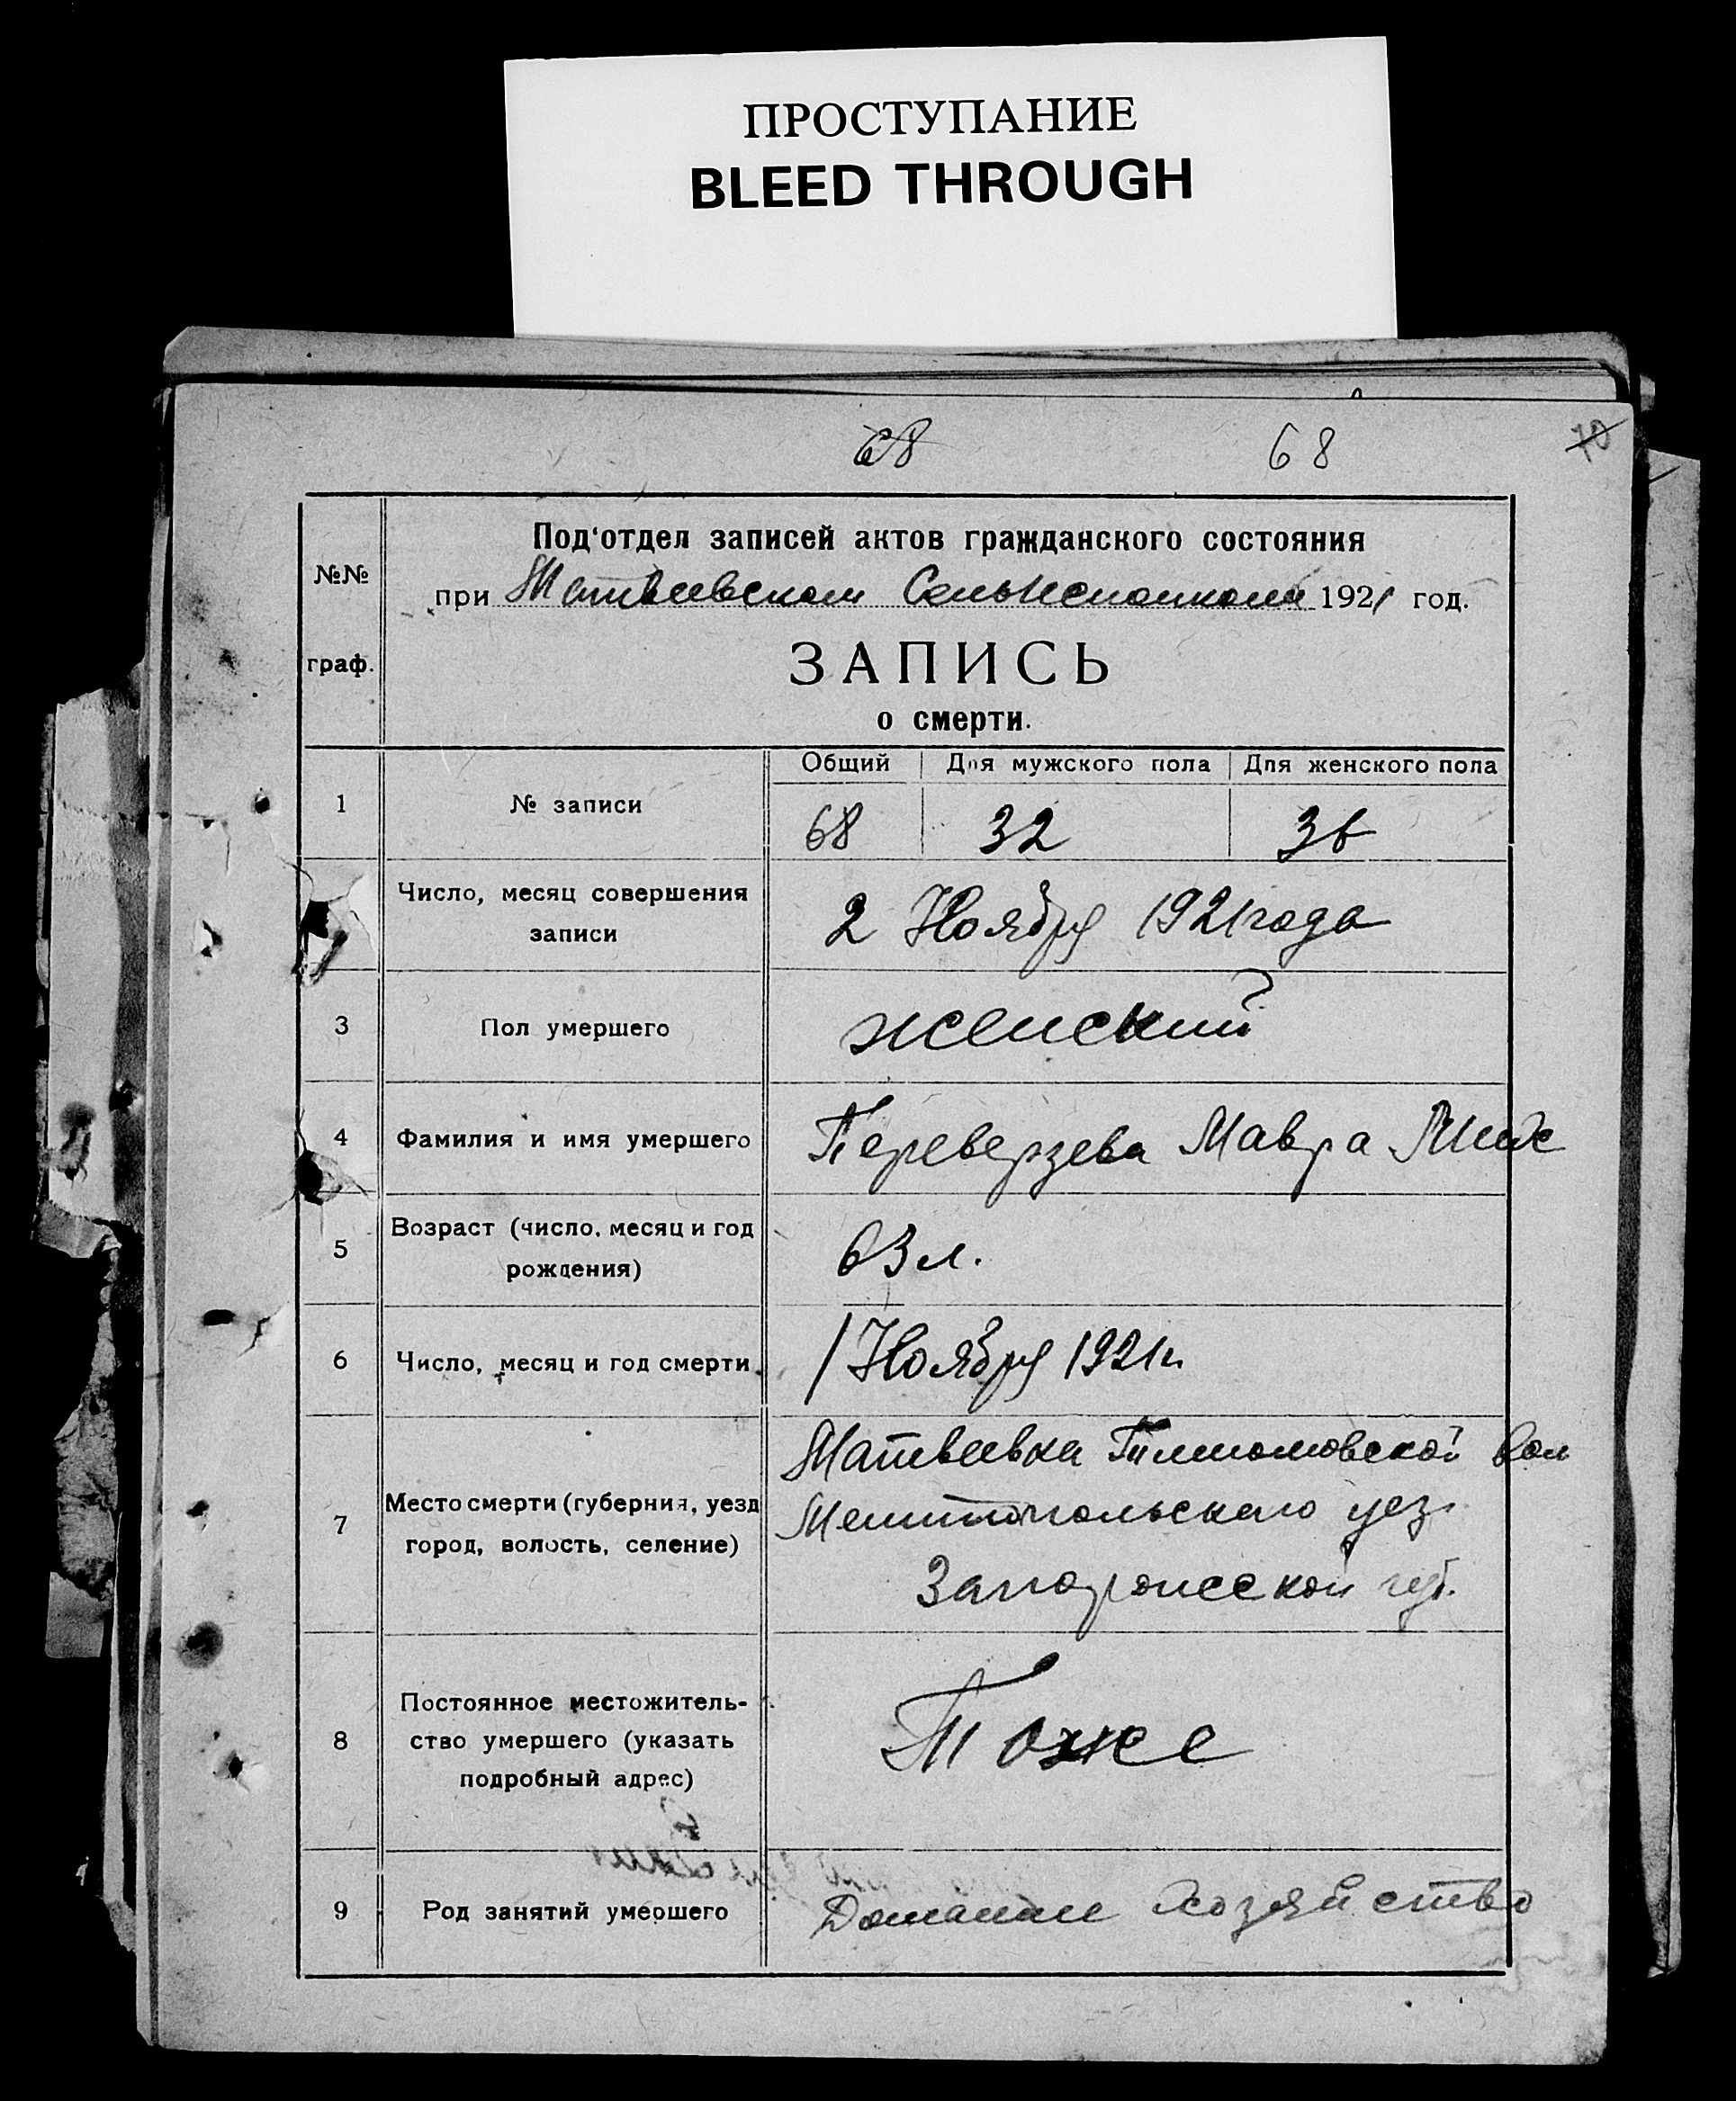 ПРОСТУПАНИЕ
BLEED THROUGH
68 68 70
№№ граф.
Под'отдел записей актов гражданского состояния
при Матвеевском Сельисполкоме 1921 год.
ЗАПИСЬ
о смерти.
Общий Для мужского пола Для женского пола
1 № записи 68 32 36
Число, месяц совершения
записи
2 Ноября 1921 года
3 Пол умершего женский
4 Фамилия и имя умершего Переверзева Мавра Мих
5 Возраст (число, месяц и год
рождения)
63 л.
6 Число, месяц и год смерти 1 Ноября 1921 г.
7 Место смерти (губерния, уезд
город, волость, селение)
Матвеевка Вол
Мелитопольского уез.
Запорожской губ.
8 Постоянное местожитель-
ство умершего (указать
подробный адрес)
Тоже
9 Род занятий умершего Домашн хозяйство